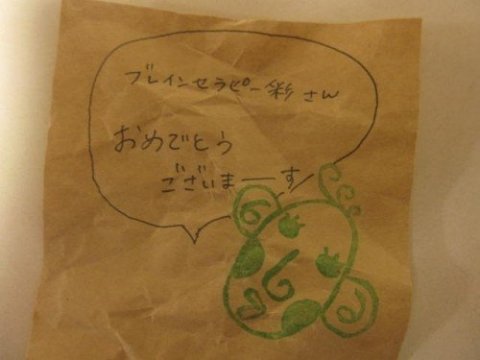 ブレインセラピー彩さん
おめでとう
ございまーす